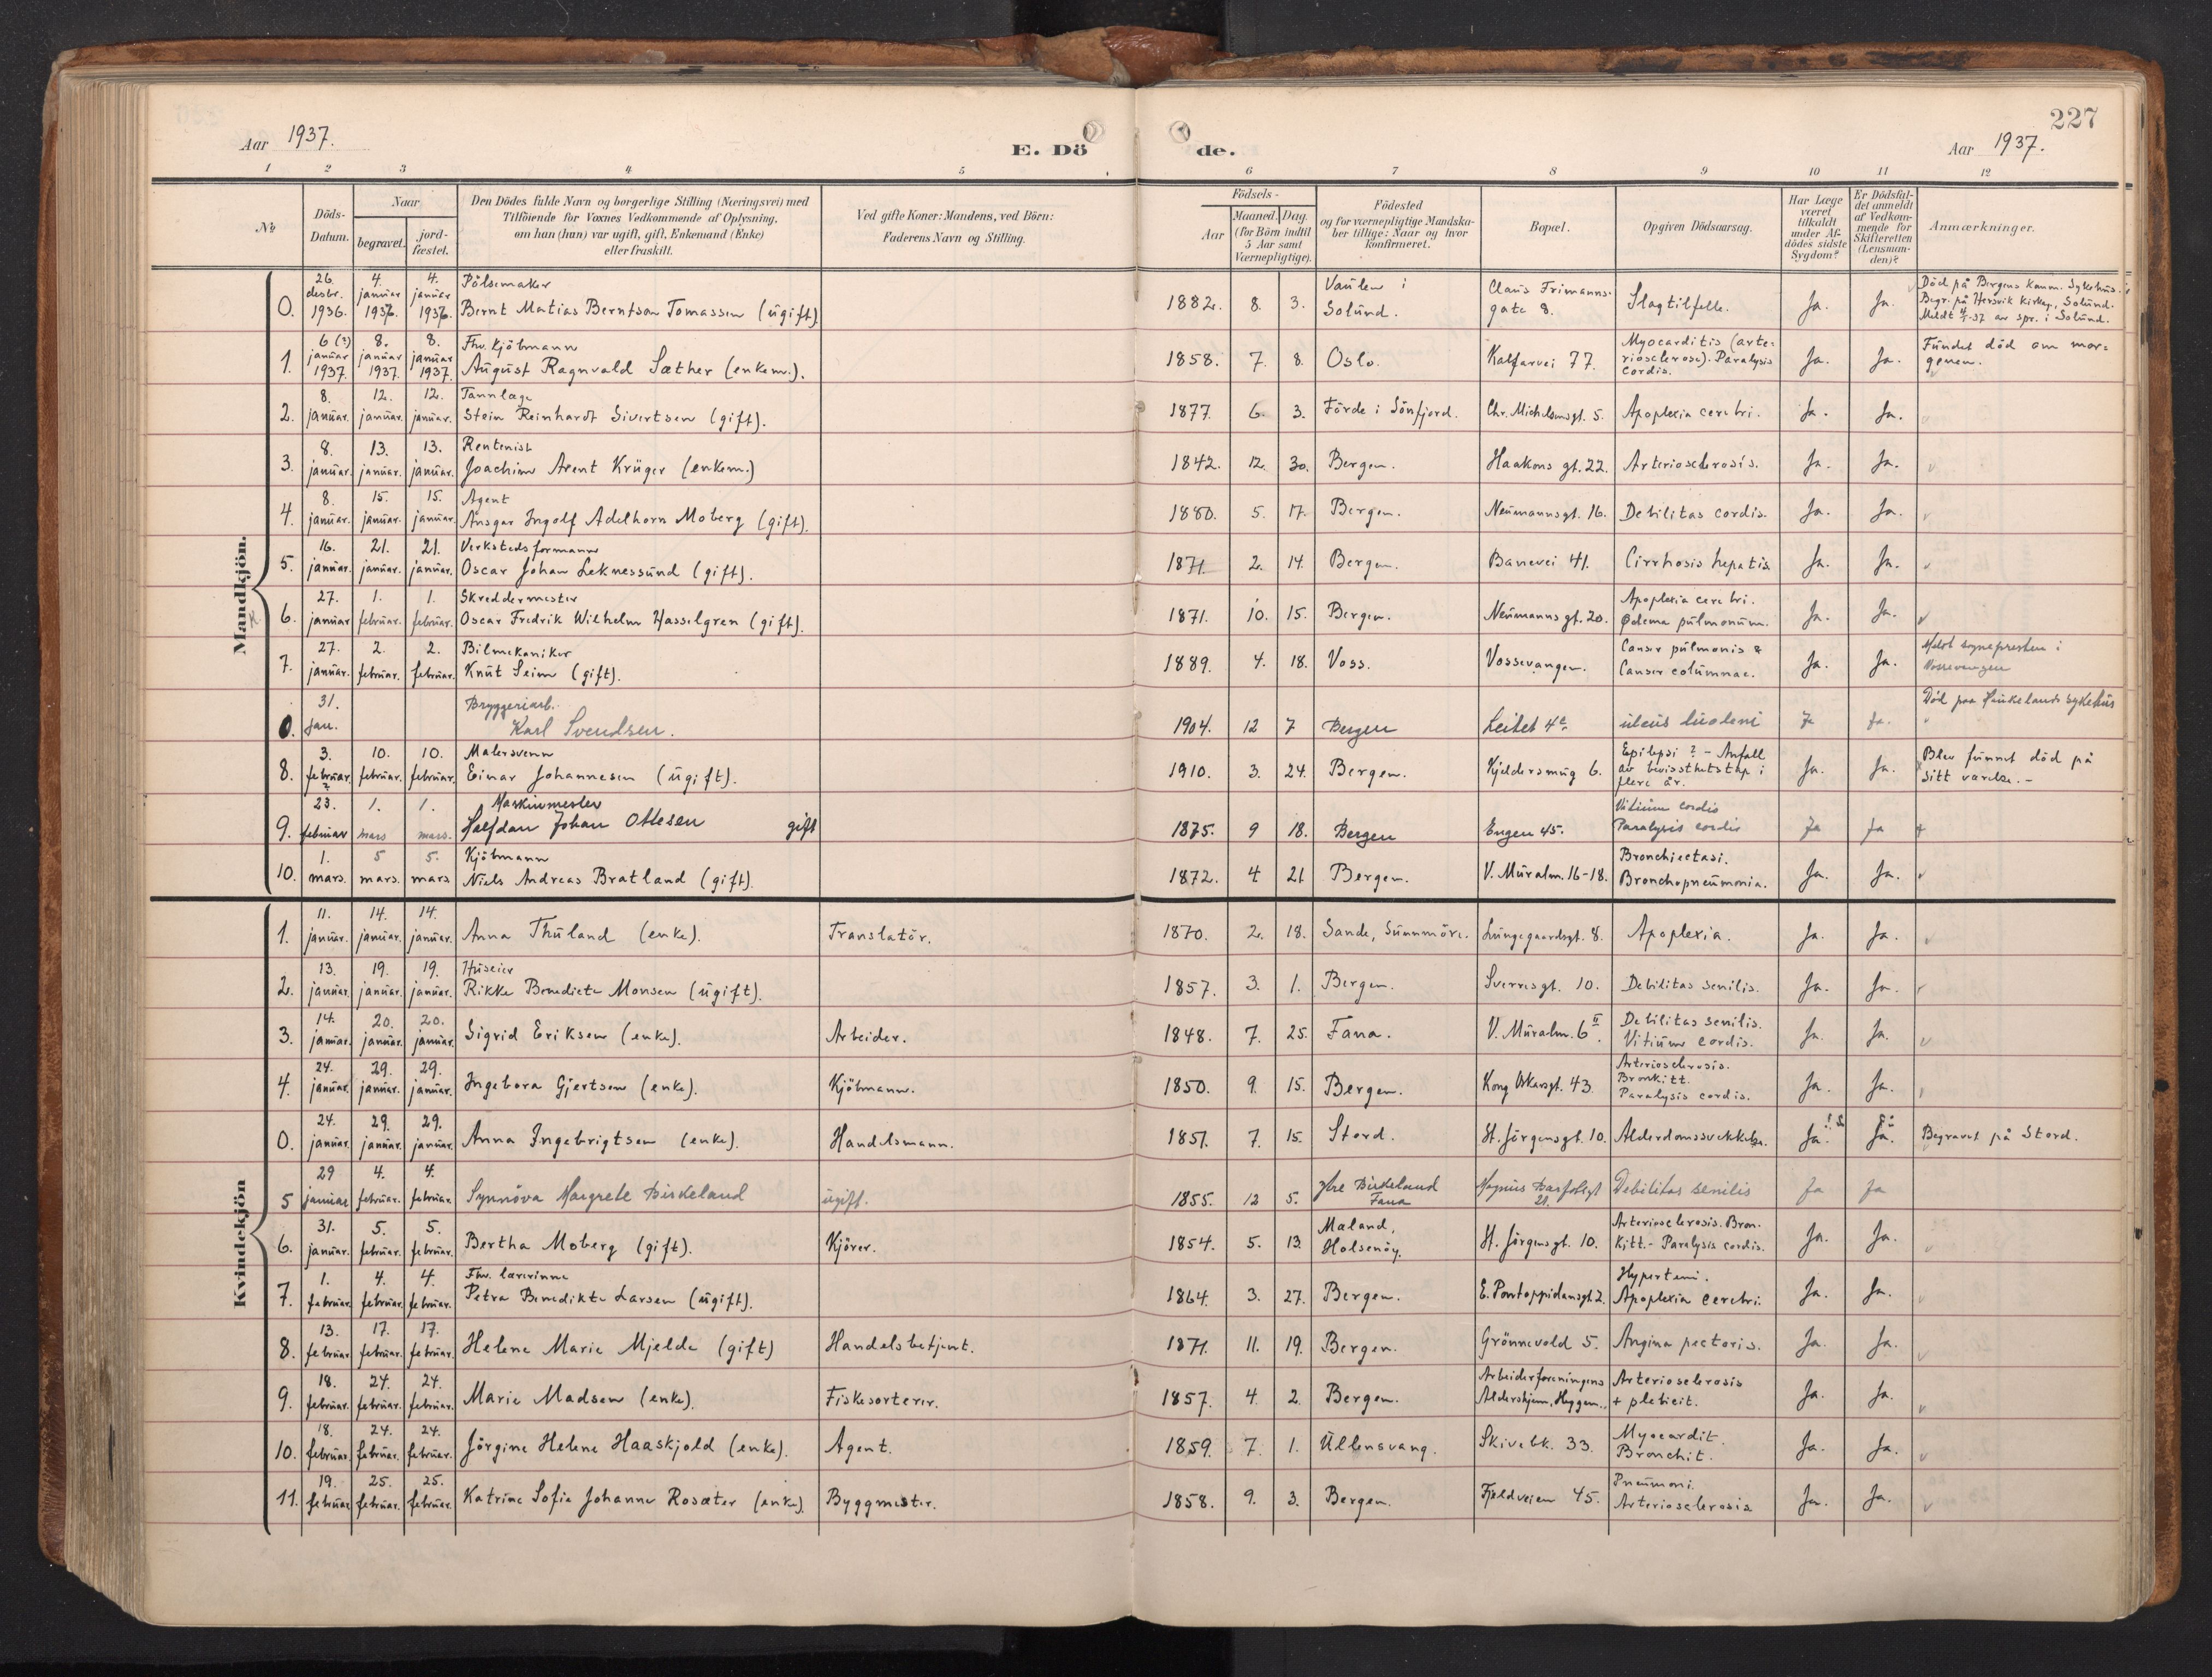 227
Aar 1937.
E. Dö
de.
Aar 1937.
1 2 3 4 5 6 7 8 9 10 11 12
№
Döds-
Datum.
Naar
begravet.
jord-
fæstet.
Den Dödes fulde Navn og borgerlige Stilling (Næringsvei) med
Tilföiende for Voxnes Vedkommende af Oplysning,
om han (hun) var ugift, gift, Enkemand (Enke)
eller fraskilt.
Ved gifte Koner: Mandens, ved Börn:
Faderens Navn og Stilling.
Födsels-
Aar
Maaned. Dag.
(for Börn indtil
5 Aar samt
Værnepligtige).
Födested
og for værnepligtige Mandska-
ber tillige: Naar og hvor
konfirmeret.
Bopæl.
Opgiven Dödsaarsag.
Har Læge
været
tilkaldt
under Af-
dödes sidste
Sygdom?
Er Dödsfal-
det anmeldt
af Vedkom-
mende for
Skifteretten
(Lensman-
den)?
Anmærkninger.
Mandkjön.
26. 4. 4. Pölsemaker Vaulen i Claus Frimanns- Död på Bergens komm. Sykehus.
desbr. januar januar
0. 1936. 1937. 1937. Bernt Matias Berntson Tomassen (ugift). 1882. 8. 3. Solund. gate 8. Slagtilfelle. Ja. Ja. Begr. på Hersvik kirkeg., Solund.
Meldt 4/1-37 av spr. i Solund.
6 (?) 8. 8. Fhv. Kjöbmann Myocarditis (arte- Fundet död om mor-
1. januar 1937. januar 1937. januar 1937. August Ragnvald Sæther (enkem.). 1858. 7. 8. Oslo. Kalfarvei 77. riosclerose). Paralysis Ja. Ja. genen.
cordis.
8. 12. 12. Tannlæge
2. januar. januar. januar. Stein Reinhardt Sivertsen (gift). 1877. 6. 3. Förde i Sönfjord. Chr. Michelsensgt. 5. Apoplexia cerebri. Ja. Ja.
8. 13. 13. Rentenist
3. januar. januar. januar. Joachim Arent Krüger (enkem.) 1842. 12. 30. Bergen. Haakons gt. 22. Arteriosclerosis. Ja. Ja.
8. 15. 15. Agent
4. januar. januar. januar. Ansgar Ingolf Adelhorn Moberg (gift). 1880. 5. 17. Bergen. Neumannsgt. 16. Debilitas cordis. Ja. Ja.
16. 21. 21. Verkstedsformann
5. januar. januar. januar. Oscar Johan Leknessund (gift). 1871. 2. 14. Bergen. Banevei 41. Cirrhosis hepatis. Ja. Ja.
27. 1. 1. Skreddermester Apoplexia cerebri.
6. januar februar. februar. Oscar Fredrik Wilhelm Hasselgren (gift). 1871. 10. 15. Bergen. Neumanns gt. 20. Ødema pulmonum. Ja. Ja.
27. 2. 2. Bilmekaniker Canser pulmonis & Meldt sognepresten i
7. januar. februar. februar. Knut Seim (gift). 1889. 4. 18. Voss. Vossevangen. Canser columnae. Ja. Ja. Vossevangen
31. Bryggeriarb. Död paa Haukelands sykehus
0. Jan. Karl Svendsen. 1904. 12 7 Bergen Leitet 4 ulcus duodeni Ja Ja.
3. 10. 10. Malersvenn Epilepsi? - Anfall Blev funnet död på
8. februar. februar. februar. Einar Johannesen (ugift). 1910. 3. 24. Bergen. Kjeldersmug 6. av bevissthetstap i Ja. Ja. sitt værelse. -
flere år.
23. 1. 1. Maskinmester Vitium cordis
9. februar mars mars. Halfdan Johan Ottesen gift 1875. 9 18. Bergen Engen 45. Paralysis cordis Ja Ja
1. 5 5. Kjöbmann Bronchiectasi.
10. mars. mars. mars Niels Andreas Bratland (gift). 1872. 4 21 Bergen. V. Muralm. 16-18. Bronchopneumonia. Ja. Ja.
Kvindekjön
11. 14. 14.
1. januar. januar. januar. Anna Thuland (enke). Translatör. 1870. 2. 18. Sande, Sunnmöre. Lungegaardsgt. 8. Apoplexia. Ja. Ja.
13. 19. 19. Huseier
2. januar. januar. januar. Rikke Benedicte Monsen (ugift). 1857. 3. 1. Bergen. Sverresgt. 10. Debilitas senilis. Ja. Ja.
14. 20. 20. Debilitas senilis.
3. januar. januar. januar. Sigrid Eriksen (enke). Arbeider. 1848. 7. 25. Fana. V. Muralm. 6 II. Vitium cordis. Ja. Ja.
24. 29. 29. Arteriosclerosis.
4. januar. januar. januar. Ingeborg Gjertsen (enke). Kjöbmann. 1850. 9. 15. Bergen. Kong Oskarsgt. 43. Bronkitt. Ja. Ja.
Paralysis cordis.
24. 29. 29.
0. januar. januar. januar. Anna Ingebrigtsen (enke). Handelsmann. 1851. 7. 15. Stord. St. Jörgensgt. 10. Alderdomssvekkelse. Ja. Ja. Begravet på Stord.
29 4. 4.
5 januar februar. februar. Synnöva Margrete Birkeland ugift. 1855. 12 5. Ytre Birkeland Magnus Barfotsgt Debilitas senilis Ja Ja
Fana 21.
31. 5. 5. Mæland, Arteriosclerosis. Bron-
6. januar. februar. februar. Bertha Moberg (gift). Kjörer. 1854. 5. 13. Holsenöy. St. Jörgensgt. 10. kitt.- Paralysis cordis. Ja. Ja.
1. 4. 4. Fhv. lærerinne Hypertensi.
7. februar. februar. februar. Petra Benedikte Larsen (ugift). 1864. 3. 27. Bergen. E. Pontoppidansgt. 2. Apoplexia cerebri. Ja. Ja.
13. 17. 17.
8. februar. februar. februar. Helene Marie Mjelde (gift) Handelsbetjent. 1871. 11. 19. Bergen. Grönnevold 5. Angina pectoris. Ja. Ja.
18. 24. 24. Arbeiderforeningens Arteriosclerosis
9. februar. februar. februar. Marie Madsen (enke). Fiskesorterer. 1857. 4. 2. Bergen. Aldershjem, Heggen. + plebicit. Ja. Ja.
18. 24. 24. Myocardit.
10. februar. februar. februar. Jörgine Helene Haaskjold (enke). Agent. 1859. 7. 1. Ullensvang. Skivebk. 33. Bronchit. Ja. Ja.
19. 25. 25. Pneumoni.
11. februar. februar. februar. Katrine Sofie Johanne Rosæter (enke). Byggmester. 1858. 9. 3. Bergen. Fjeldveien 45. Arteriosclerosis Ja. Ja.